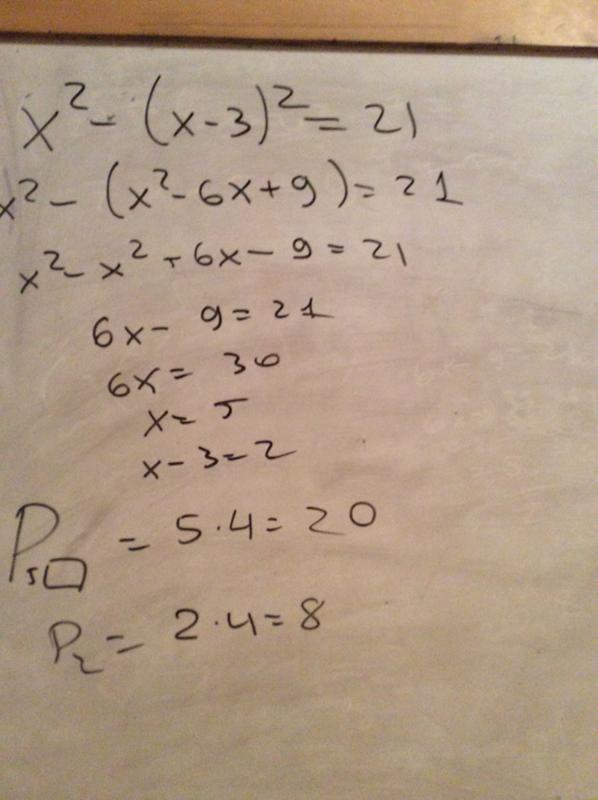 x² - (x-3)² = 21
x² - (x² - 6x + 9) = 21
x² - x² + 6x - 9 = 21
6x - 9 = 21
6x = 30
x = 5
x - 3 = 2
P₅□ = 5·4 = 20
P₂ = 2·4 = 8